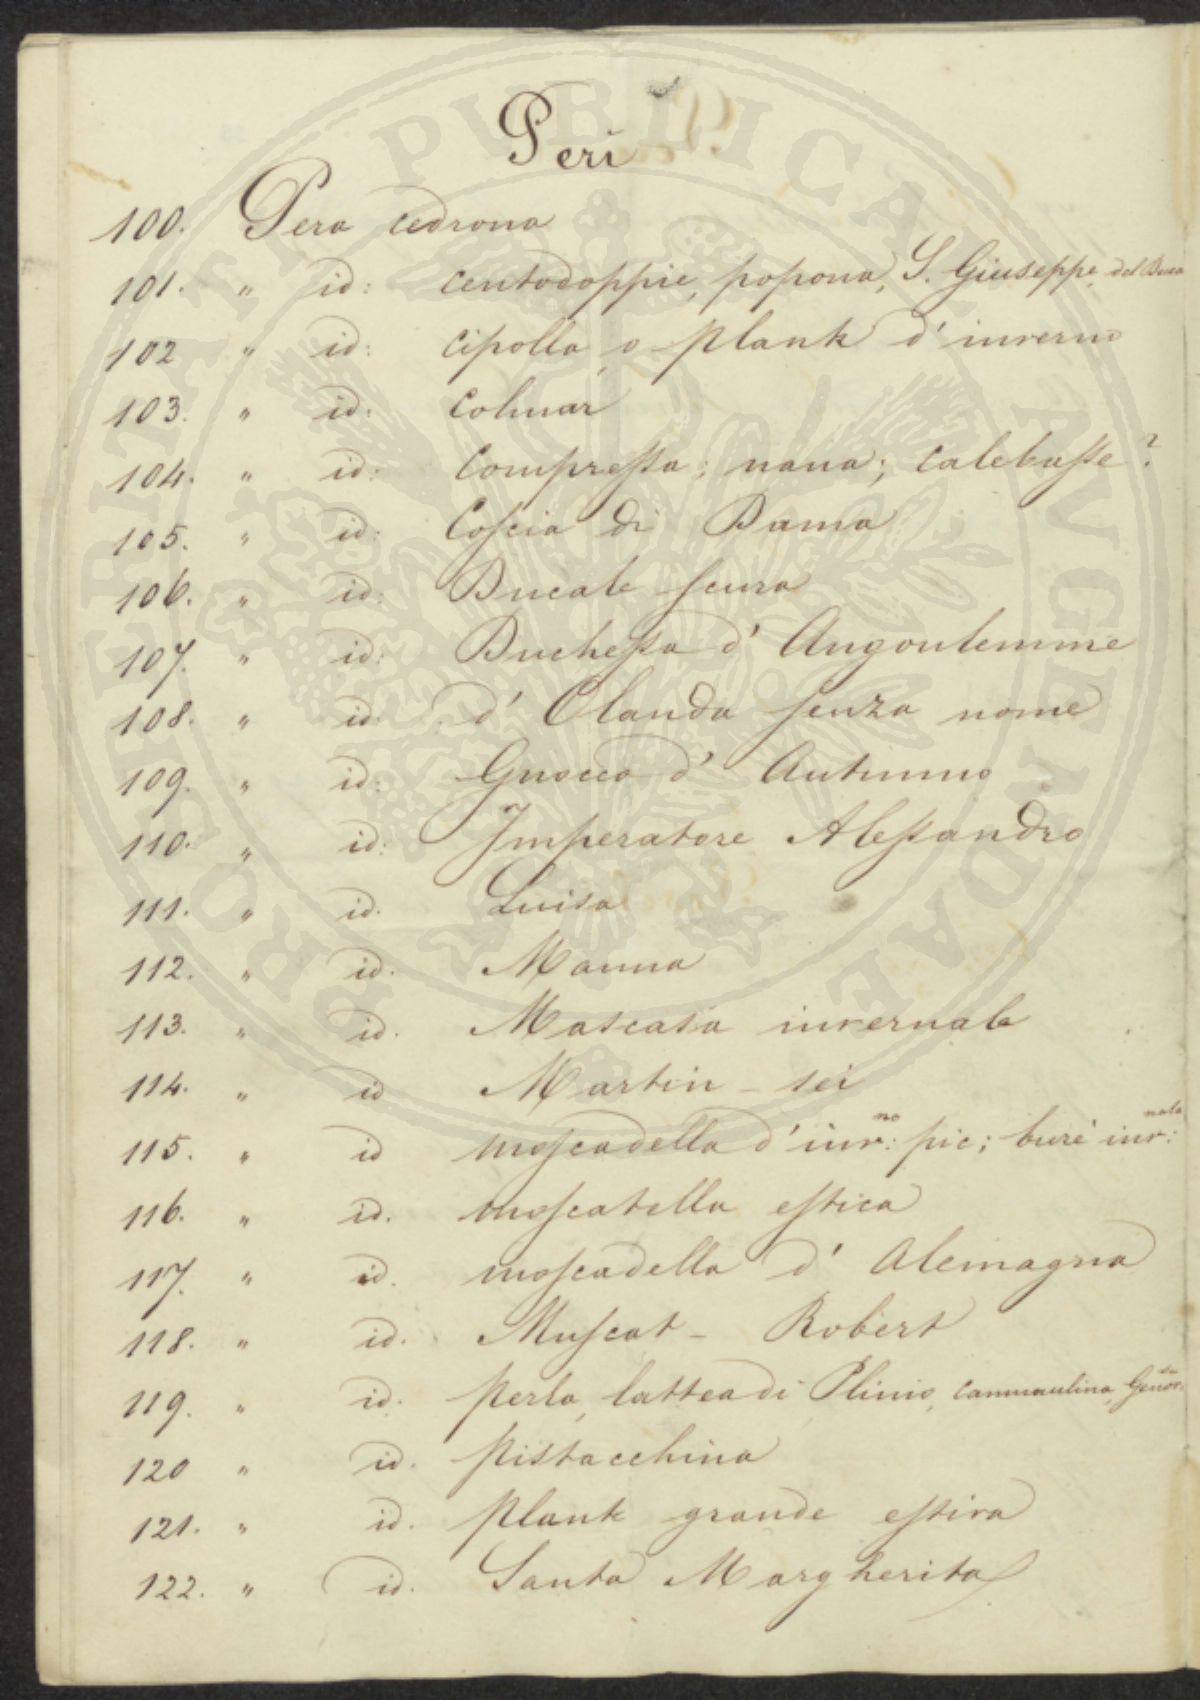 Peri
100. Pera cedrona
101. " id: centodoppie, popona, S. Giuseppe, del Duca
102 " id: cipolla, o plank d' inverno
103. " id: Colmar
104. " id: Compressa; nana; calebasse?
105. " id: Coscia di Dama
106. " id: Ducale scura
107. " id: Duchessa d' Angoulemme
108. " id: d' Olanda senza nome
109. " id: Gnocco d' Autunno
110. " id: Imperatore Alessandro
111. " id. Luisa
112. " id. Manna
113. " id. Mascasa invernale
114. " id Martin - sei
115. " id moscadella d' inv:no pic; buré inv:nale
116. " id. moscatella estica
117. " id. moscadella d' Alemagna
118. " id. Muscat - Robert
119. " id. perla, lattea di Plinio, cammaulina,
120 " id. pistacchina
121. " id. plank grande estiva
122. " id. Santa Margherita
PROSPERITATI PUBLICAE AUGENDAE